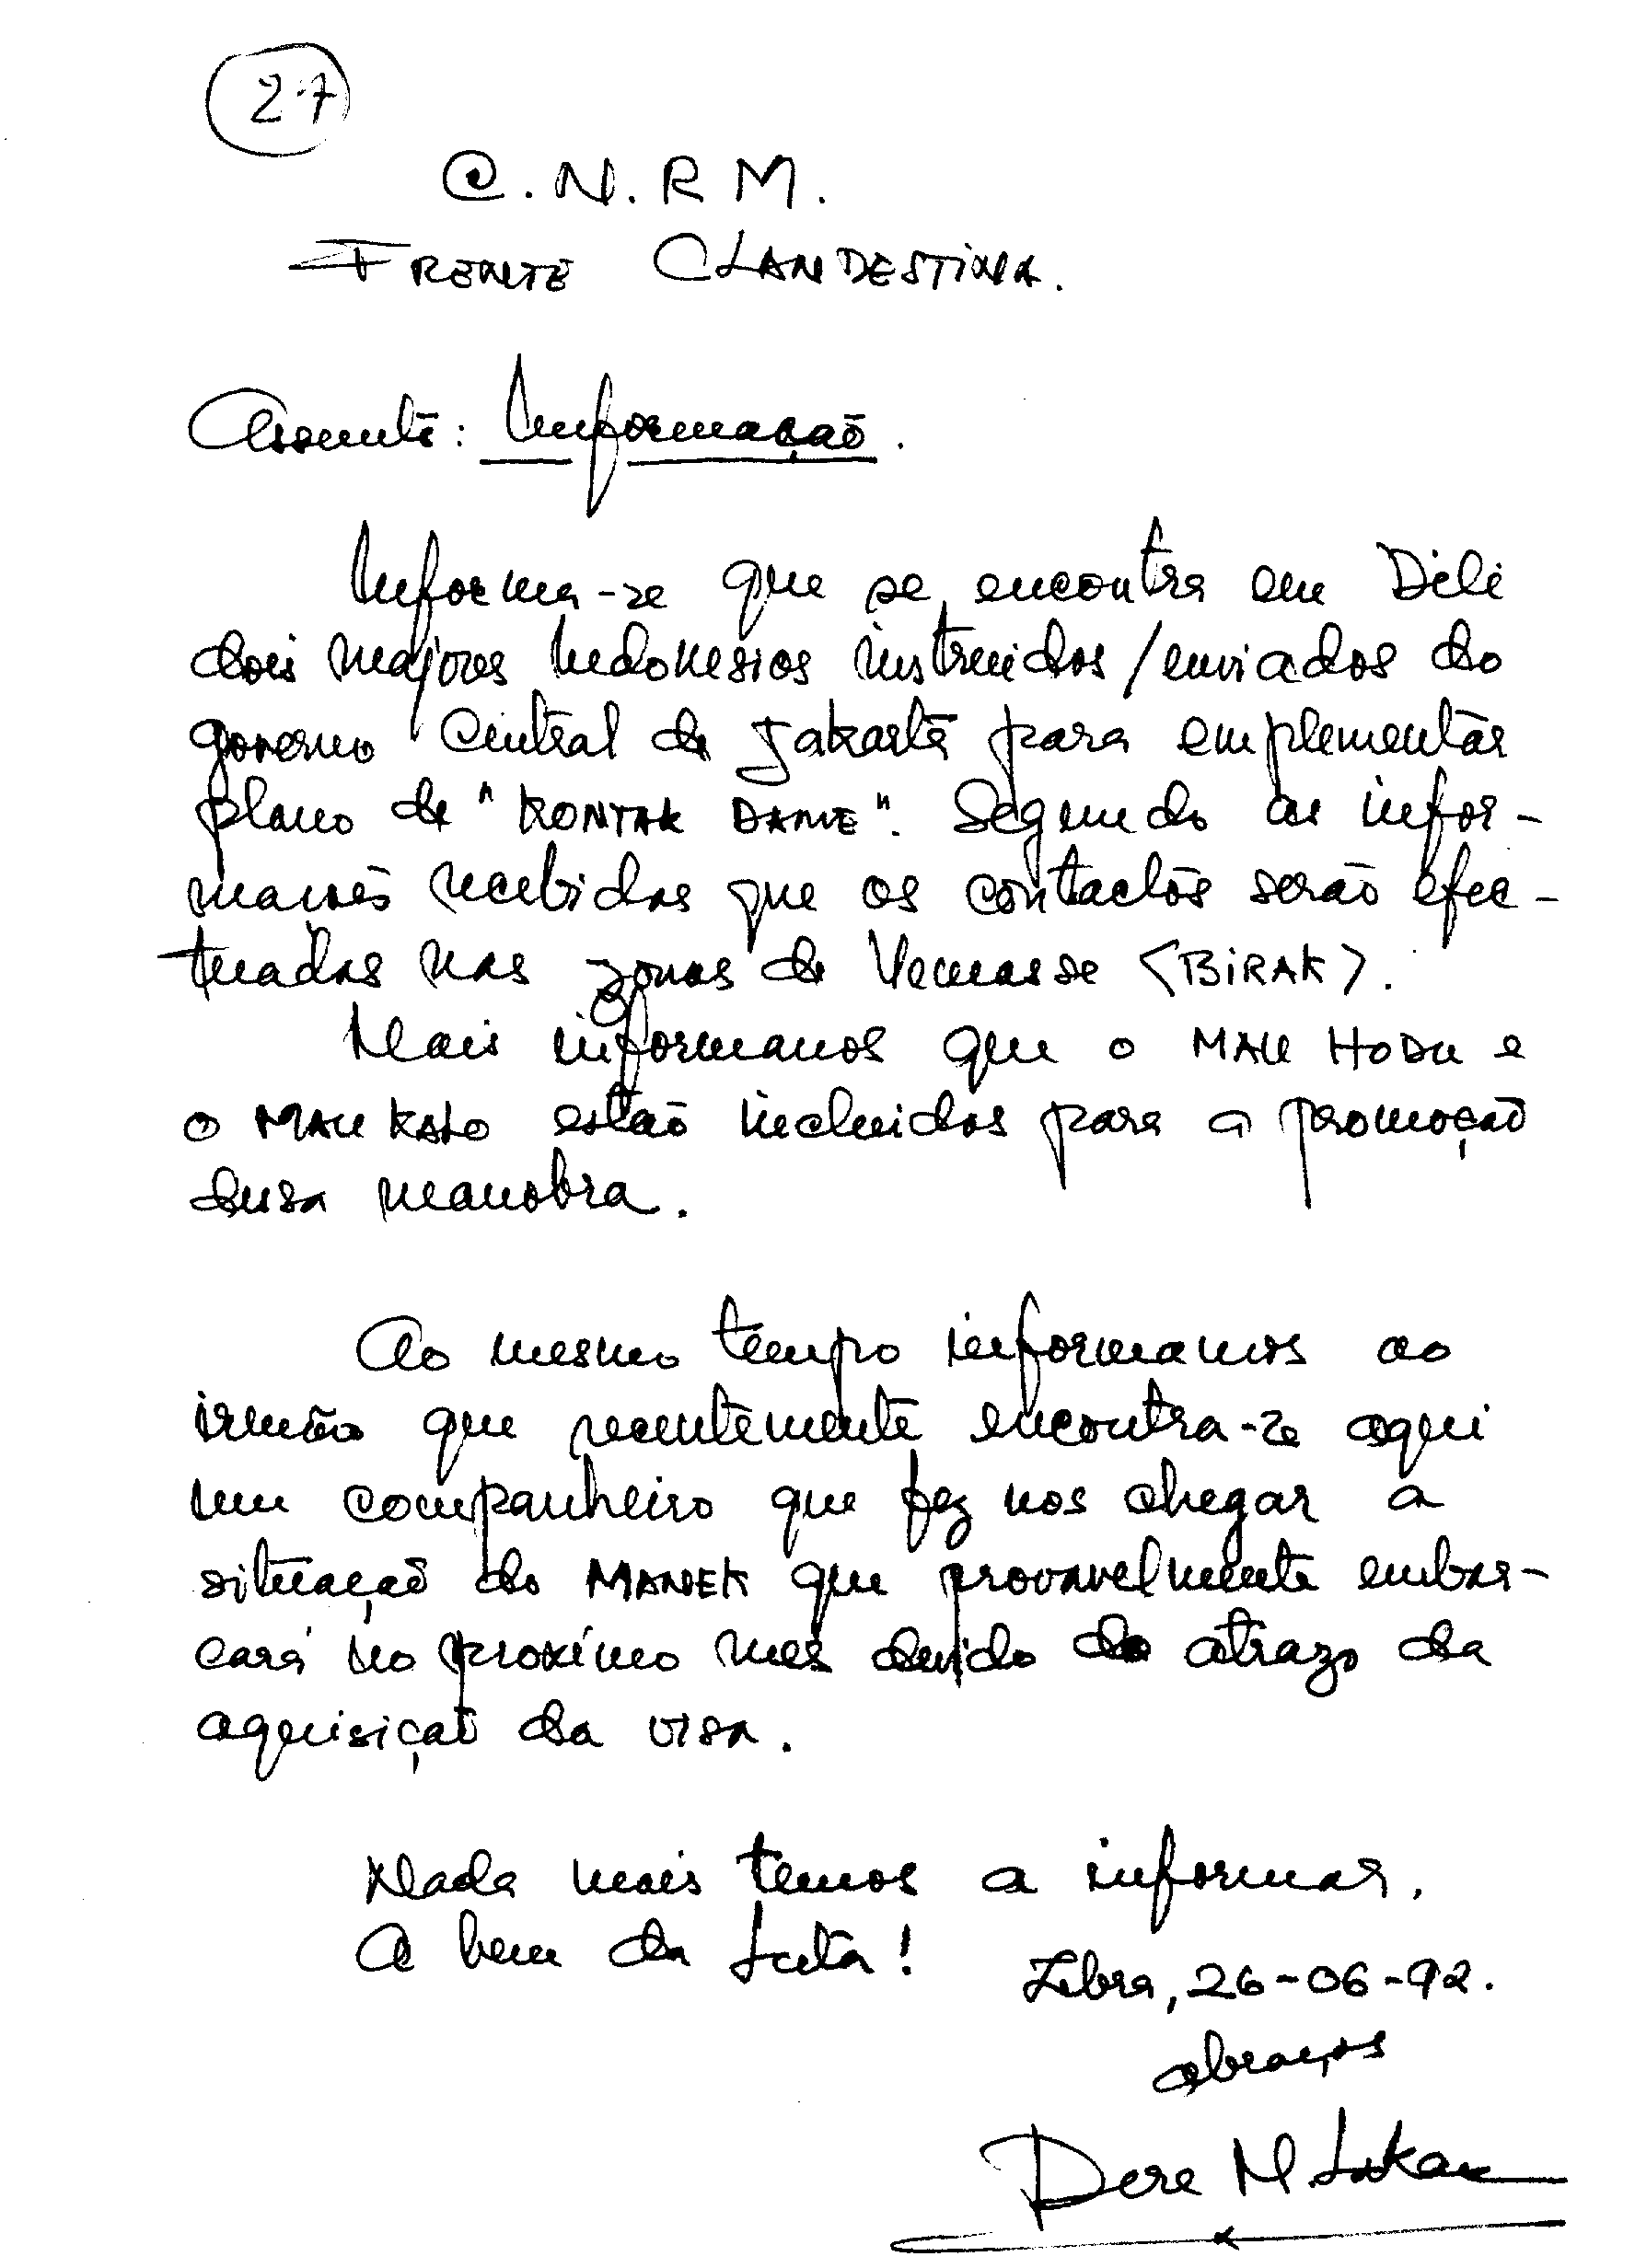 27
C.N.R M.
FRENTE CLANDESTINA.
Assunto: Informação.
Informa-se que se encontra em Dili
dois majores Indonesios instruidos/enviados do
governo Central de Jakarta para emplementar
plano de "KONTAK DAME". Segundo as infor-
macoẽs recebidas que os contactos serão efec-
tuadas nas zonas de Vemasse <BIRAK>.
Mais informamos que o MAU HODU e
o MAU KALO estão incluidos para a promoção
dessa manobra.
Ao mesmo tempo informamos ao
irmão que recentemente encontra-se aqui
um companheiro que fez nos chegar a
situação do MANEK que provavelmente embar-
cará no proxímo mes devido do atrazo da
aquisiçaõ da visa.
Nada mais temos a informar.
A bem da Luta!
Libra, 26-06-92.
abraços
Dere M.